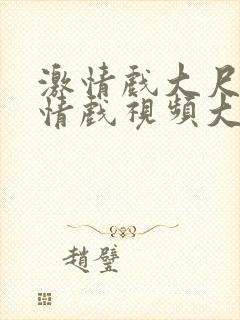 激情戲大尺
情戲視頻大
趙璧